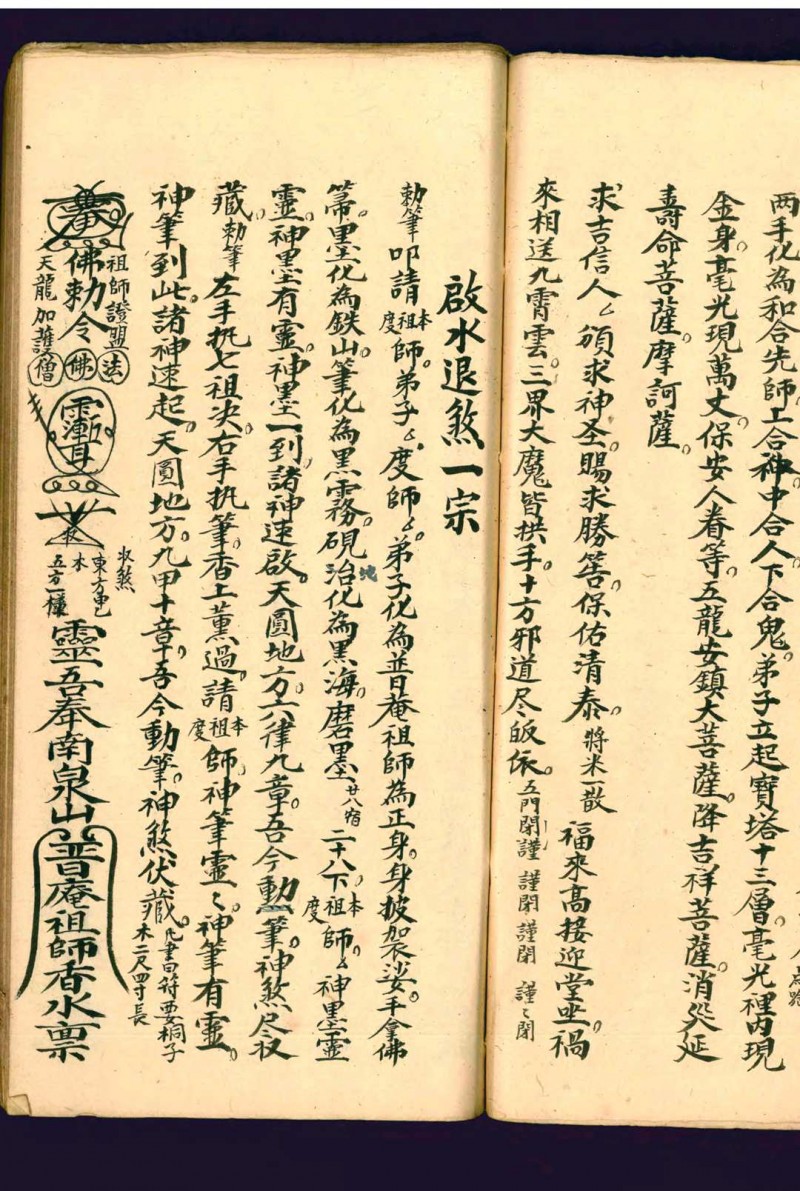 两手化為和合先師上合神中合人下合鬼弟子立起寶塔十三層毫光裡內現
金身毫光現萬丈保安人眷等五龍安鎮大菩薩降吉祥菩薩消災延
壽命菩薩摩訶薩
求吉信人厶頒求神圣賜求勝筶保佑清泰將米一散 福來高接迎堂坐禍
來相送九霄雲三界大魔皆拱手十方邪道尽皈依五門閉謹謹閉謹閉謹〻閉
啟水退煞一宗
勅筆 叩請本祖度師弟子厶度師厶弟子化為普庵祖師為正身身披袈娑手拿佛
箒墨化為鉄山筆化為黑霧硯治地化為黑海磨墨廿八宿二十八下本祖度師厶神墨靈
靈神墨有靈神墨一到諸神速啟天圓地方六律九章吾今動筆神煞尽收
藏勅筆左手执七祖决右手执筆香上薰過請本祖度師神筆靈〻神筆有靈
神筆到此諸神速起天圓地方九甲十章吾今動筆神煞伏藏凡書曰符要桐子木二尺四寸長
佛勅令祖師證盟天龍加護法佛僧 收煞東方電木五方一樣靈吾奉南泉山普庵祖師香水禀